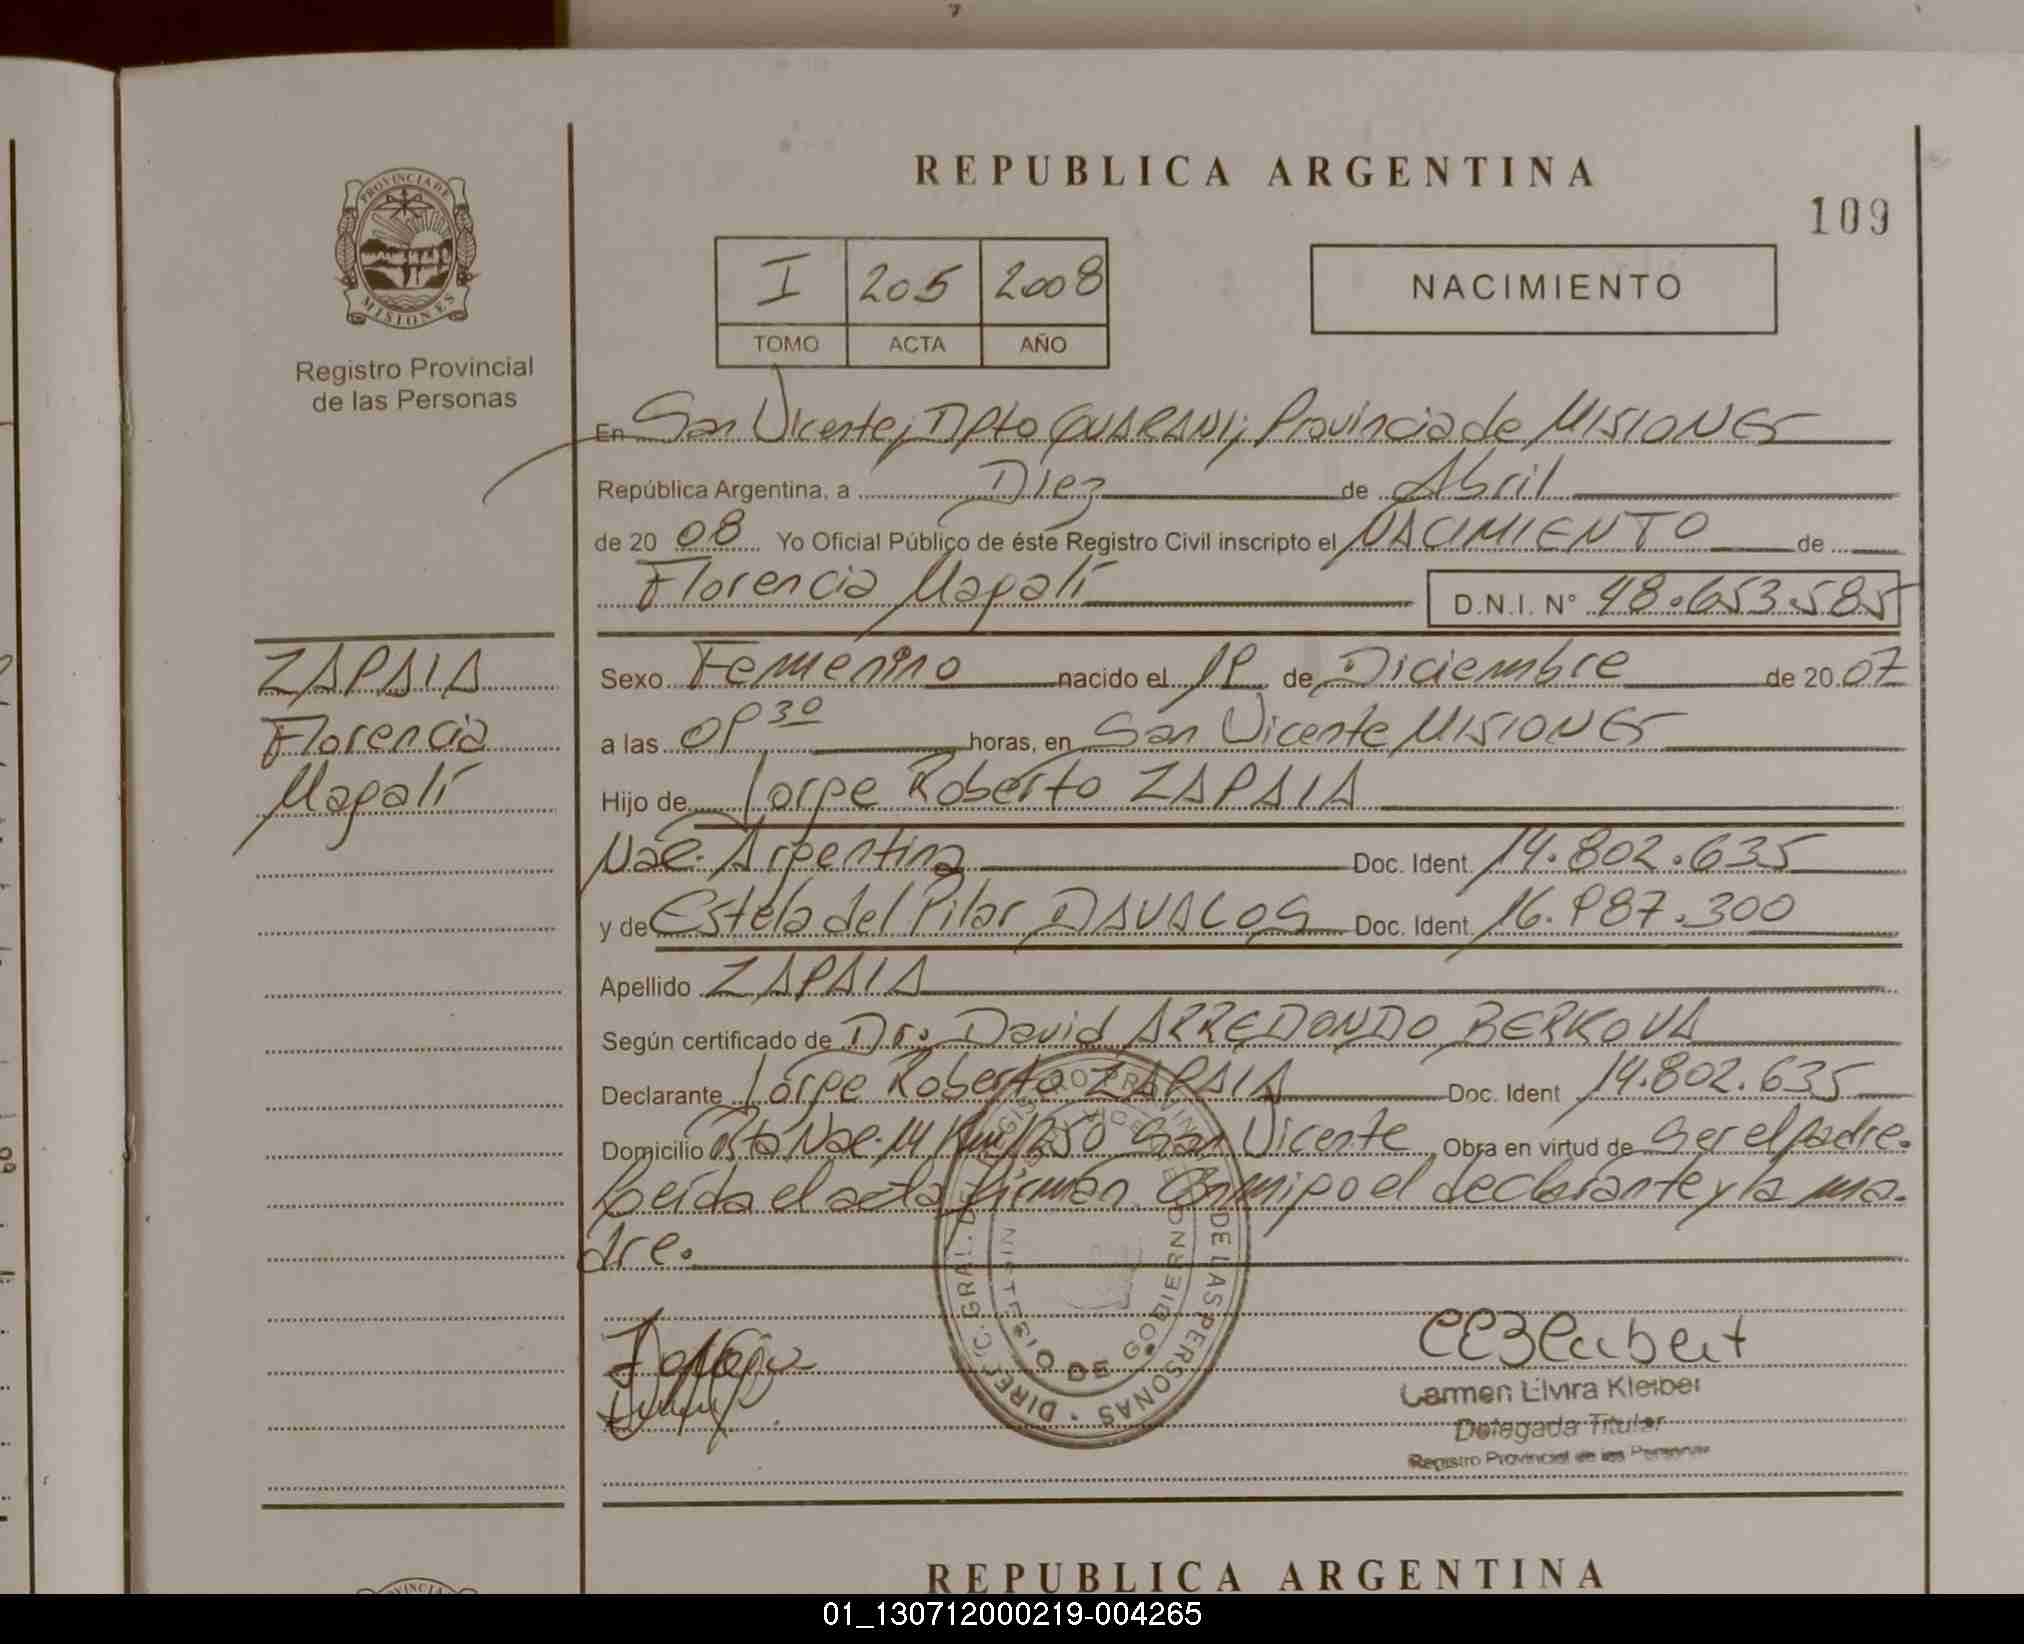 REPUBLICA ARGENTINA
109
PROVINCIA DE
MISIONES
Registro Provincial
de las Personas
I 205 2008
TOMO ACTA AÑO
NACIMIENTO
En San Vicente, Dpto GUARANI; Provincia de MISIONES
República Argentina, a Diez de Abril
de 20 08 Yo Oficial Público de éste Registro Civil inscripto el NACIMIENTO de
Florencia Magalí D.N.I. Nº 48.653.585
ZAPAIA
Florencia
Magalí
Sexo Femenino nacido el 19 de Diciembre de 20 07
a las 09 30 horas, en San Vicente MISIONES
Hijo de Jorge Roberto ZAPAIA
Nac. Argentina Doc. Ident. 14.802.635
y de Estela del Pilar DAVALOS Doc. Ident. 16.987.300
Apellido ZAPAIA
Según certificado de Dr. David ARREDONDO BERKOVA
Declarante Jorge Roberto ZAPAIA Doc. Ident 14.802.635
Domicilio Rta Nac. 14 Km 1250 San Vicente Obra en virtud de Ser el padre.
Leída el acta firman conmigo el declarante y la ma-
dre.
Carmen Elvira Kleiber
Delegada Titular
Registro Provincial de las Personas
REPUBLICA ARGENTINA
01_130712000219-004265